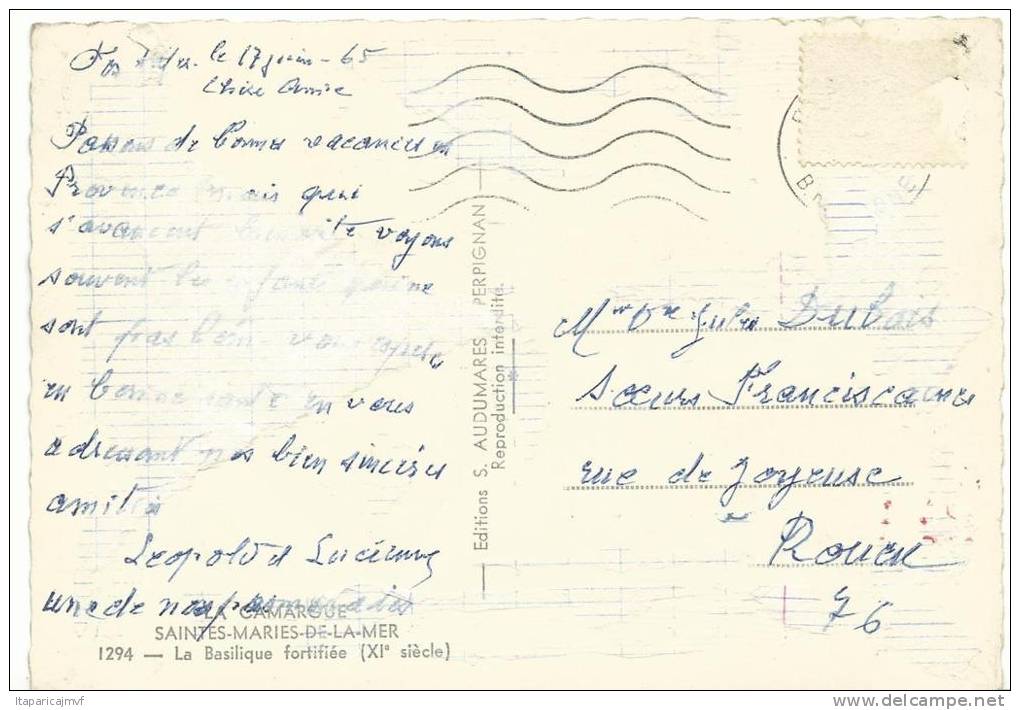 le 17 juin - 65
Chère Amie
Passons de bonnes vacances en
Provence mais qui
s'avancent bien vite voyons
souvent les enfants Janine
sont bien vous espère
en bonne santé en vous
adressant nos bien sincères
amitiés
Léopold et Lucienne
une de nos promenades
LA CAMARGUE
SAINTES-MARIES-DE-LA-MER
1294 — La Basilique fortifiée (XIe siècle)
Editions S. AUDUMARES PERPIGNAN
Reproduction interdite.
Dubois
Sœurs Franciscaines
rue de Joyeuse
Rouen
76
ltaparicajmvf
delcampe.net